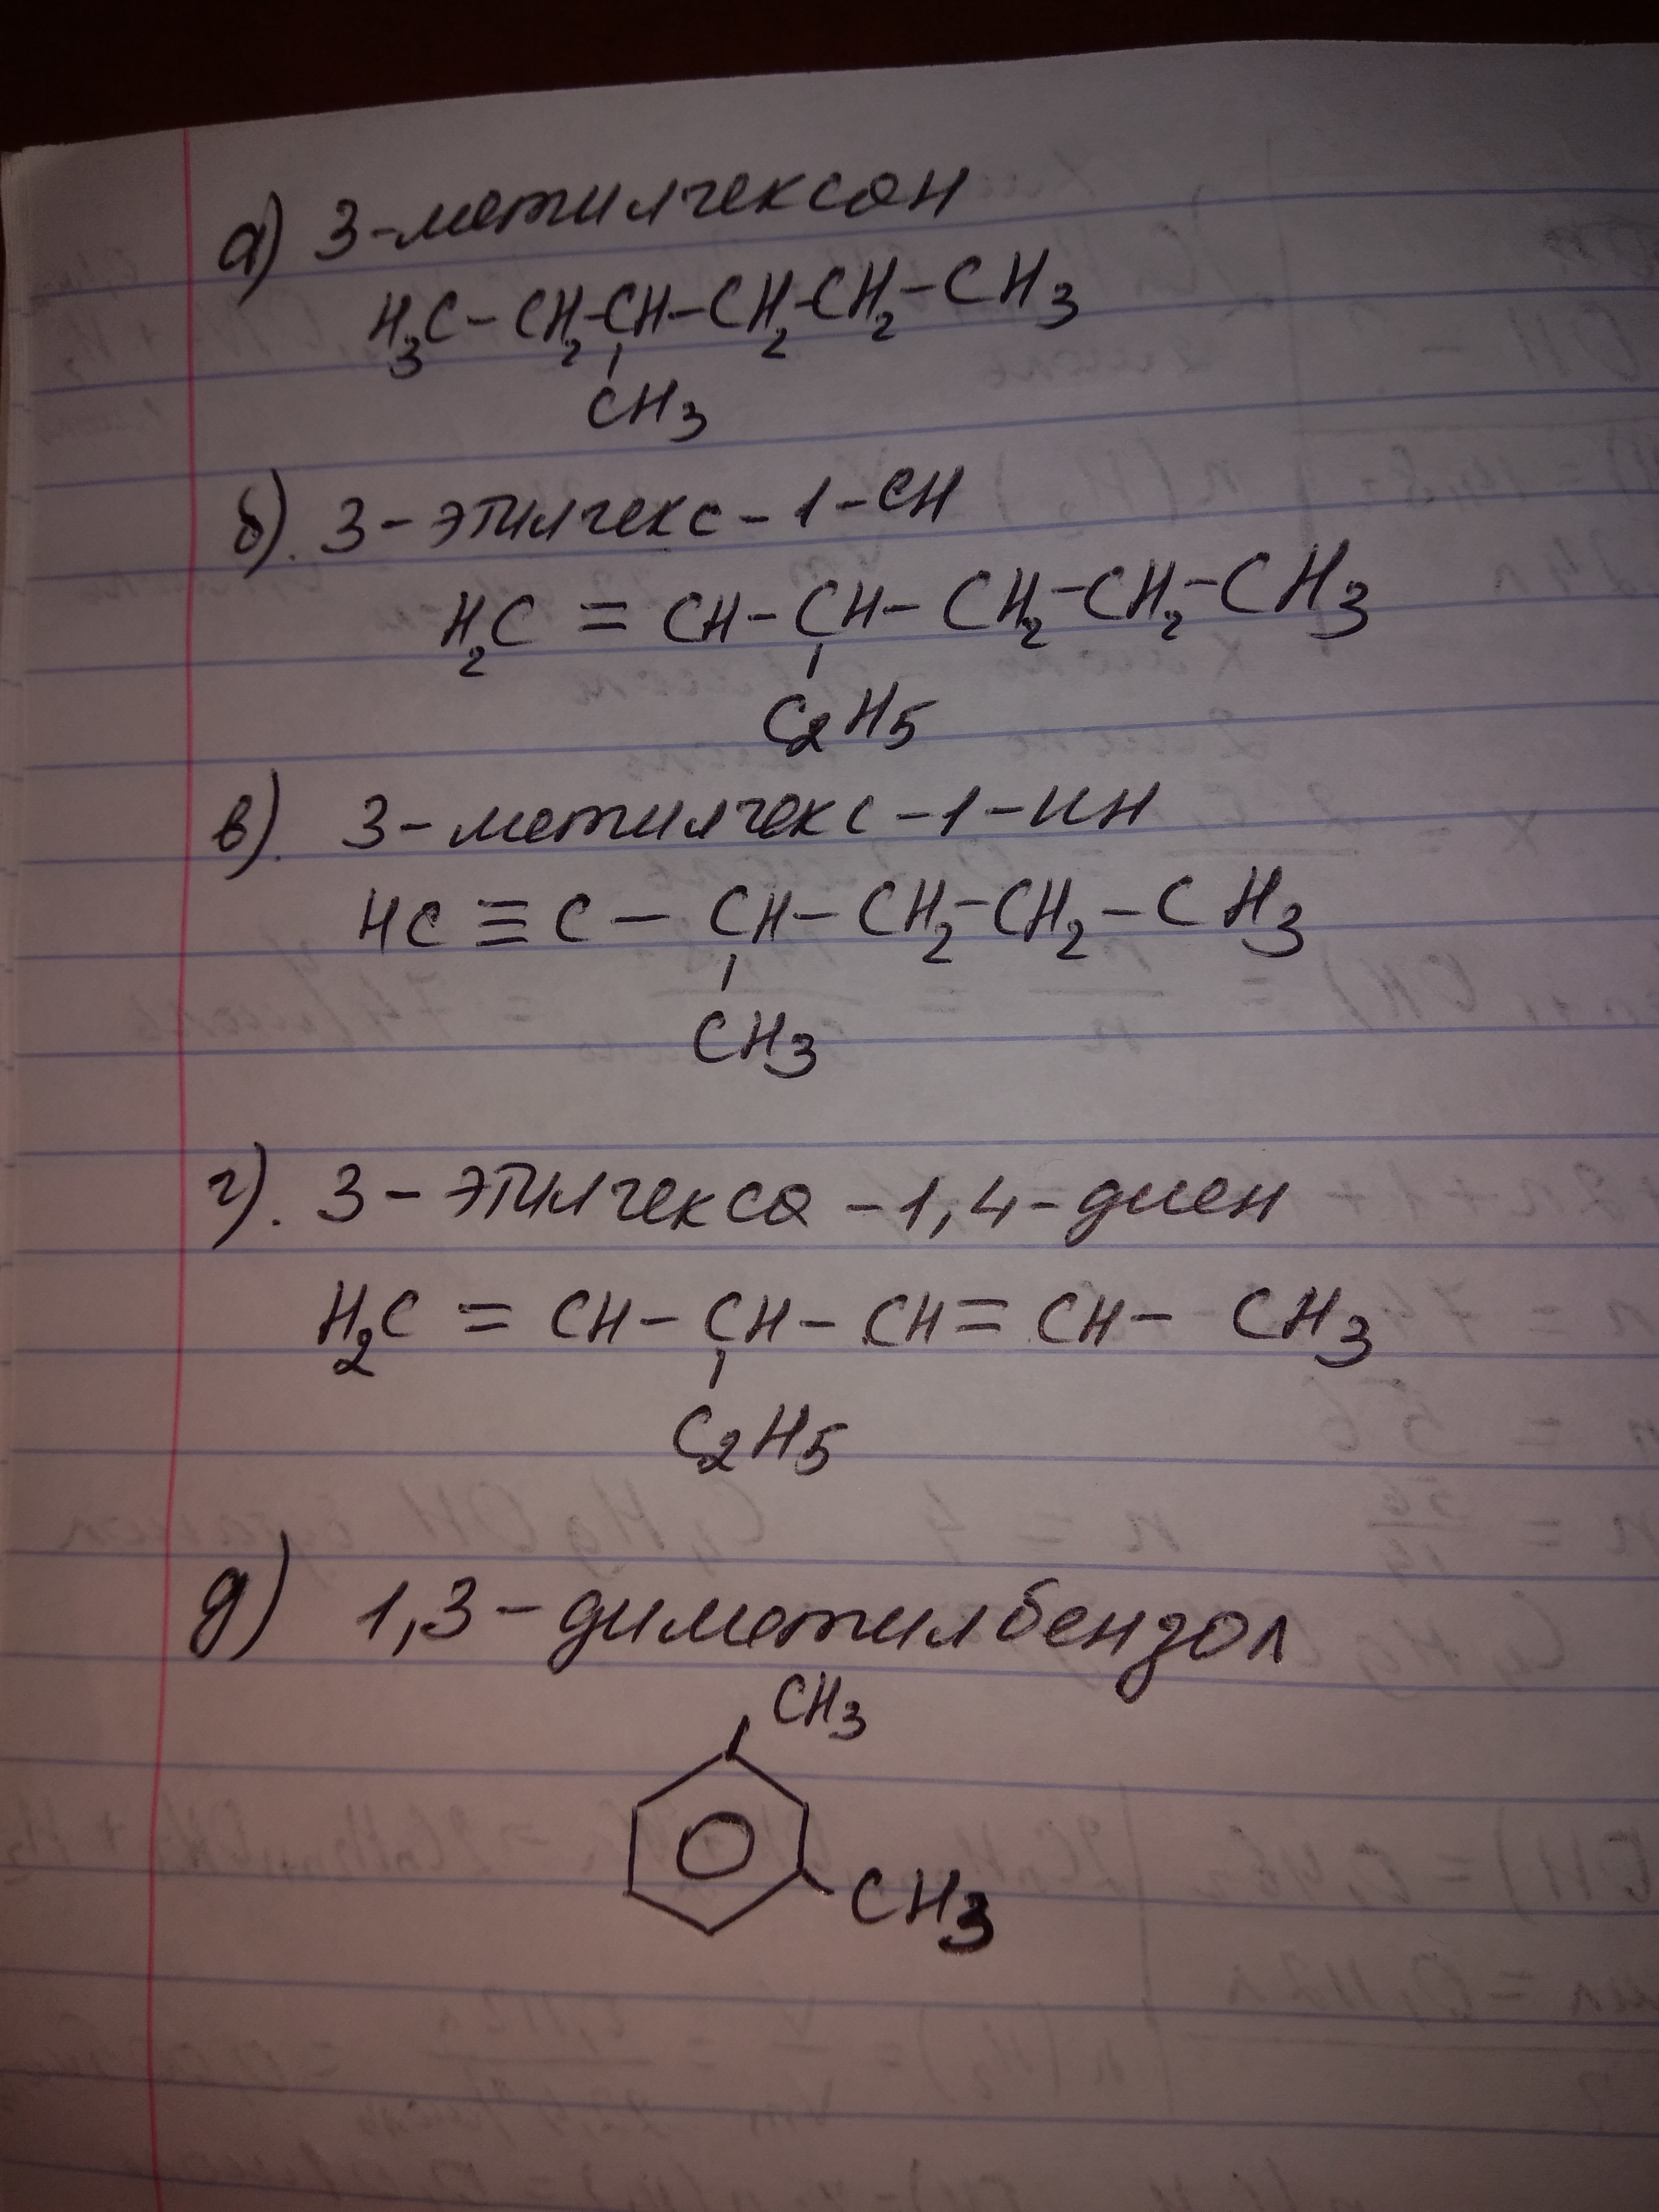 а) 3-метилгексан
H₃C-CH₂-CH-CH₂-CH₂-CH₃
CH₃
б). 3-этилгекс-1-ен
H₂C=CH-CH-CH₂-CH₂-CH₃
C₂H₅
в). 3-метилгекс-1-ин
HC≡C-CH-CH₂-CH₂-CH₃
CH₃
г). 3-этилгекса-1,4-диен
H₂C=CH-CH-CH=CH-CH₃
C₂H₅
д) 1,3-диметилбензол
CH₃
CH₃